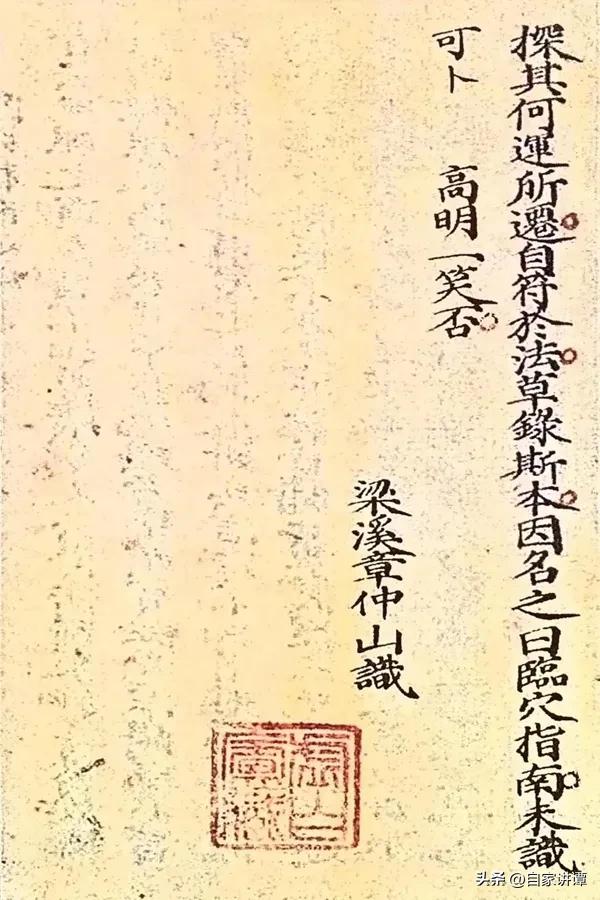 探其何運所遷自符於法草錄斯本因名之曰臨穴指南未識
可卜　高明一笑否
梁溪章仲山識
头条 @自家讲谭